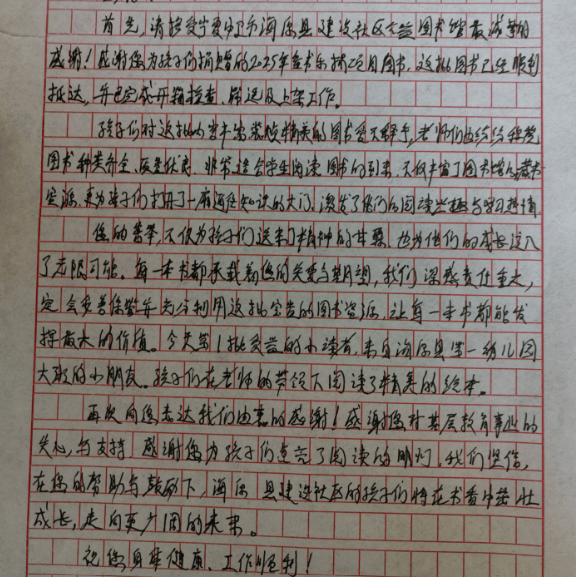 首先,请接受宁夏中卫市海原县建设社区公益图书馆最诚挚的
感谢!感谢您为孩子们捐赠的2025年壹书乐捐项目图书,这批图书已经顺利
抵达,并已完成开箱检查、筛选及上架工作。
孩子们对这批内容丰富装帧精美的图书爱不释手,老师们也纷纷称赞
图书种类齐全、质量优良、非常适合学生阅读图书的到来,不仅丰富了图书馆的藏书
资源,更为孩子们打开了一扇通往知识的大门,激发了他们的阅读兴趣与学习热情
您的善举,不仅为孩子们送来了精神的甘霖,也为他们的成长注入
了无限可能。每一本书都承载着您的关爱与期望,我们深感责任重大,
定会妥善保管并充分利用这批宝贵的图书资源,让每一本书都能发
挥最大的价值。今天第1批受益的小读者,来自海原县第一幼儿园
大班的小朋友。孩子们在老师的带领下阅读了精美的绘本。
再次向您表达我们由衷的感谢!感谢您对基层教育事业的
关心与支持,感谢您为孩子们点亮了阅读的明灯,我们坚信,
在您的帮助与鼓励下,海原县建设社区的孩子们将在书香中茁壮
成长,走向更广阔的未来。
祝您身体健康、工作顺利!